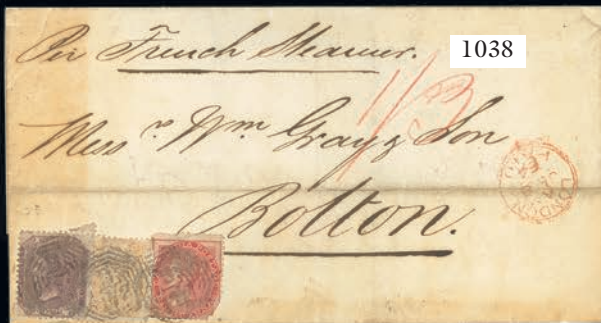 Per French Steamer.
1038
1/3
Messrs Wm Gray & Son
LONDON
Bolton.